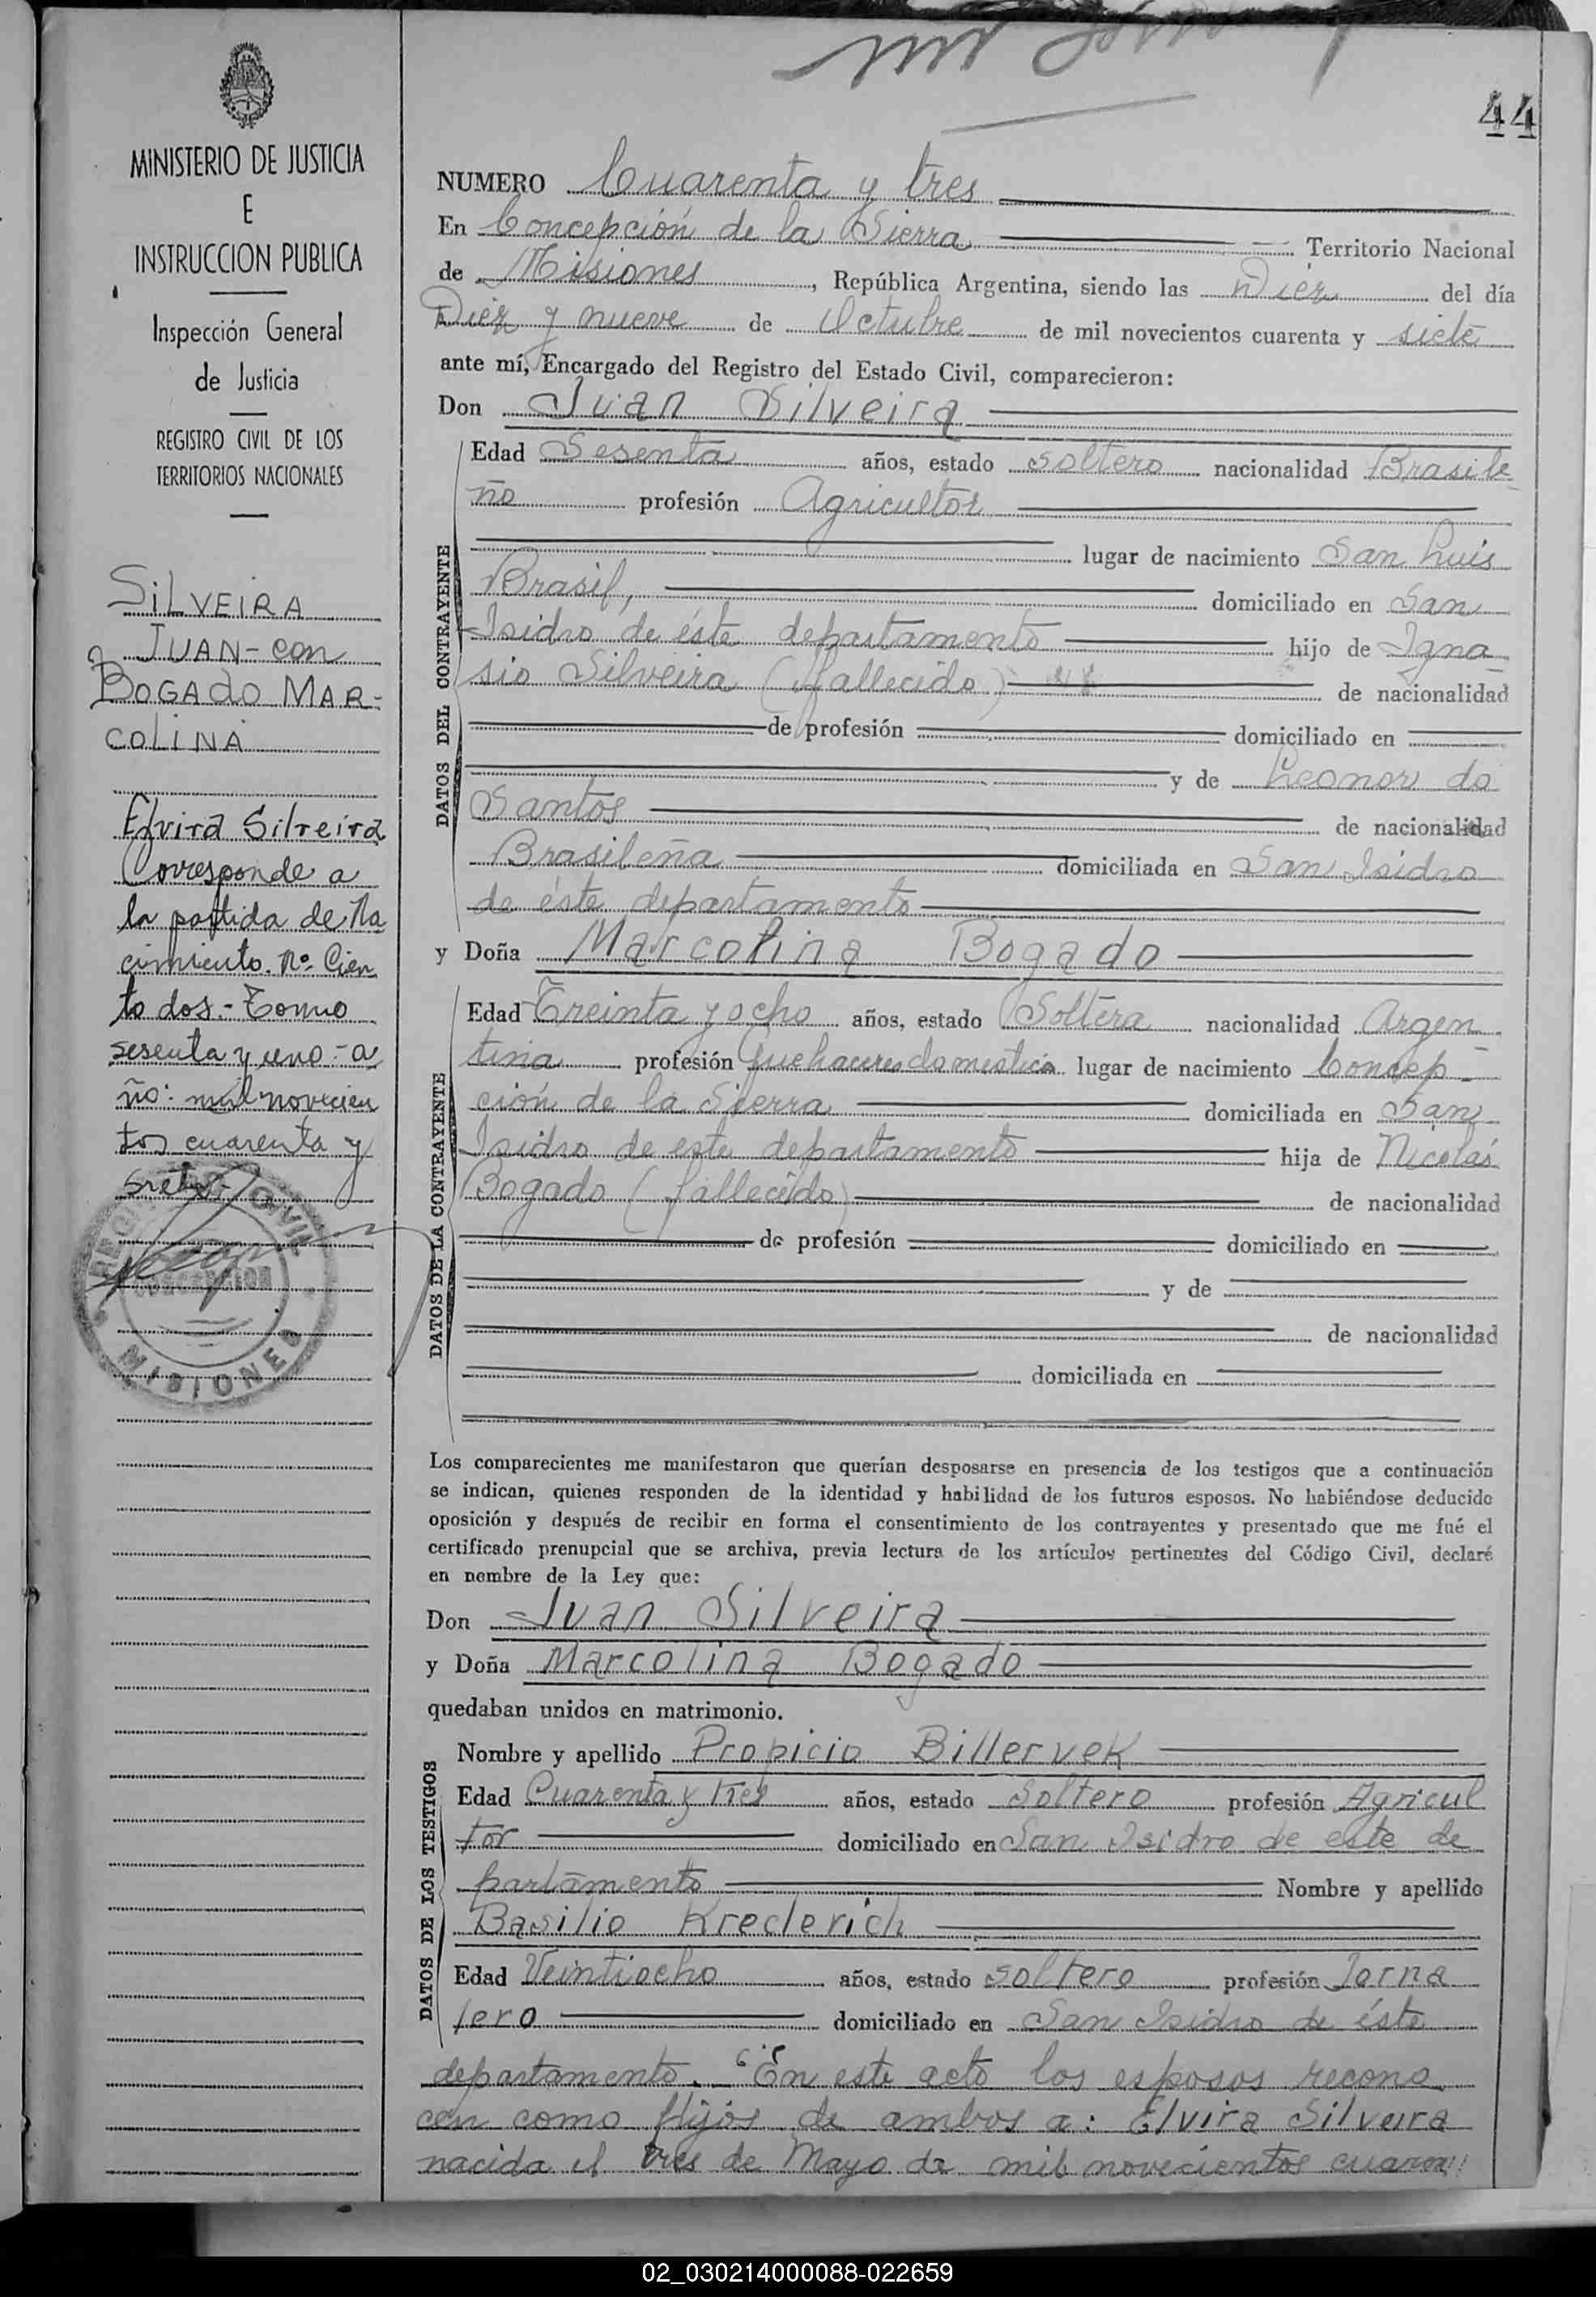 44
MINISTERIO DE JUSTICIA
E
INSTRUCCION PUBLICA
Inspección General
de Justicia
REGISTRO CIVIL DE LOS
TERRITORIOS NACIONALES
SILVEIRA
JUAN - con
BOGADO MAR-
COLINA
Elvira Silveira
Corresponde a
la partida de na
cimiento. Nº Cien
to dos.- Tomo
sesenta y uno - a
ño: mil novecien
tos cuarenta y
siete.-
REGISTRO CIVIL
CONCEPCION
MISIONES
NUMERO Cuarenta y tres
En Concepción de la Sierra Territorio Nacional
de Misiones, República Argentina, siendo las Diez del día
Diez y nueve de Octubre de mil novecientos cuarenta y siete
ante mí, Encargado del Registro del Estado Civil, comparecieron:
Don Juan Silveira
DATOS DEL CONTRAYENTE
Edad Sesenta años, estado soltero nacionalidad Brasile-
ño profesión Agricultor
lugar de nacimiento San Luis
Brasil, domiciliado en San
Isidro de éste departamento hijo de Igna-
sio Silveira (fallecido) de nacionalidad
de profesión domiciliado en
y de Leonor do
Santos de nacionalidad
Brasileña domiciliada en San Isidro
de éste departamento
y Doña Marcolina Bogado
DATOS DE LA CONTRAYENTE
Edad Treinta y ocho años, estado Soltera nacionalidad Argen-
tina profesión Quehaceres domestico lugar de nacimiento Concep-
ción de la Sierra domiciliada en San
Isidro de este departamento hija de Nicolás
Bogado (fallecido) de nacionalidad
de profesión domiciliado en
y de
de nacionalidad
domiciliada en
Los comparecientes me manifestaron que querían desposarse en presencia de los testigos que a continuación
se indican, quienes responden de la identidad y habilidad de los futuros esposos. No habiéndose deducido
oposición y después de recibir en forma el consentimiento de los contrayentes y presentado que me fué el
certificado prenupcial que se archiva, previa lectura de los artículos pertinentes del Código Civil, declaré
en nombre de la Ley que:
Don Juan Silveira
y Doña Marcolina Bogado
quedaban unidos en matrimonio.
DATOS DE LOS TESTIGOS
Nombre y apellido Propicio Billervek
Edad Cuarenta y tres años, estado soltero profesión Agricul
tor domiciliado en San Isidro de este de
partamento Nombre y apellido
Basilio Kreclerich
Edad Veintiocho años, estado soltero profesión Jorna
lero domiciliado en San Isidro de éste
departamento. "En este acto los esposos recono
cen como hijos de ambos a: Elvira Silveira
nacida el tres de Mayo de mil novecientos cuaren"
02_030214000088-022659